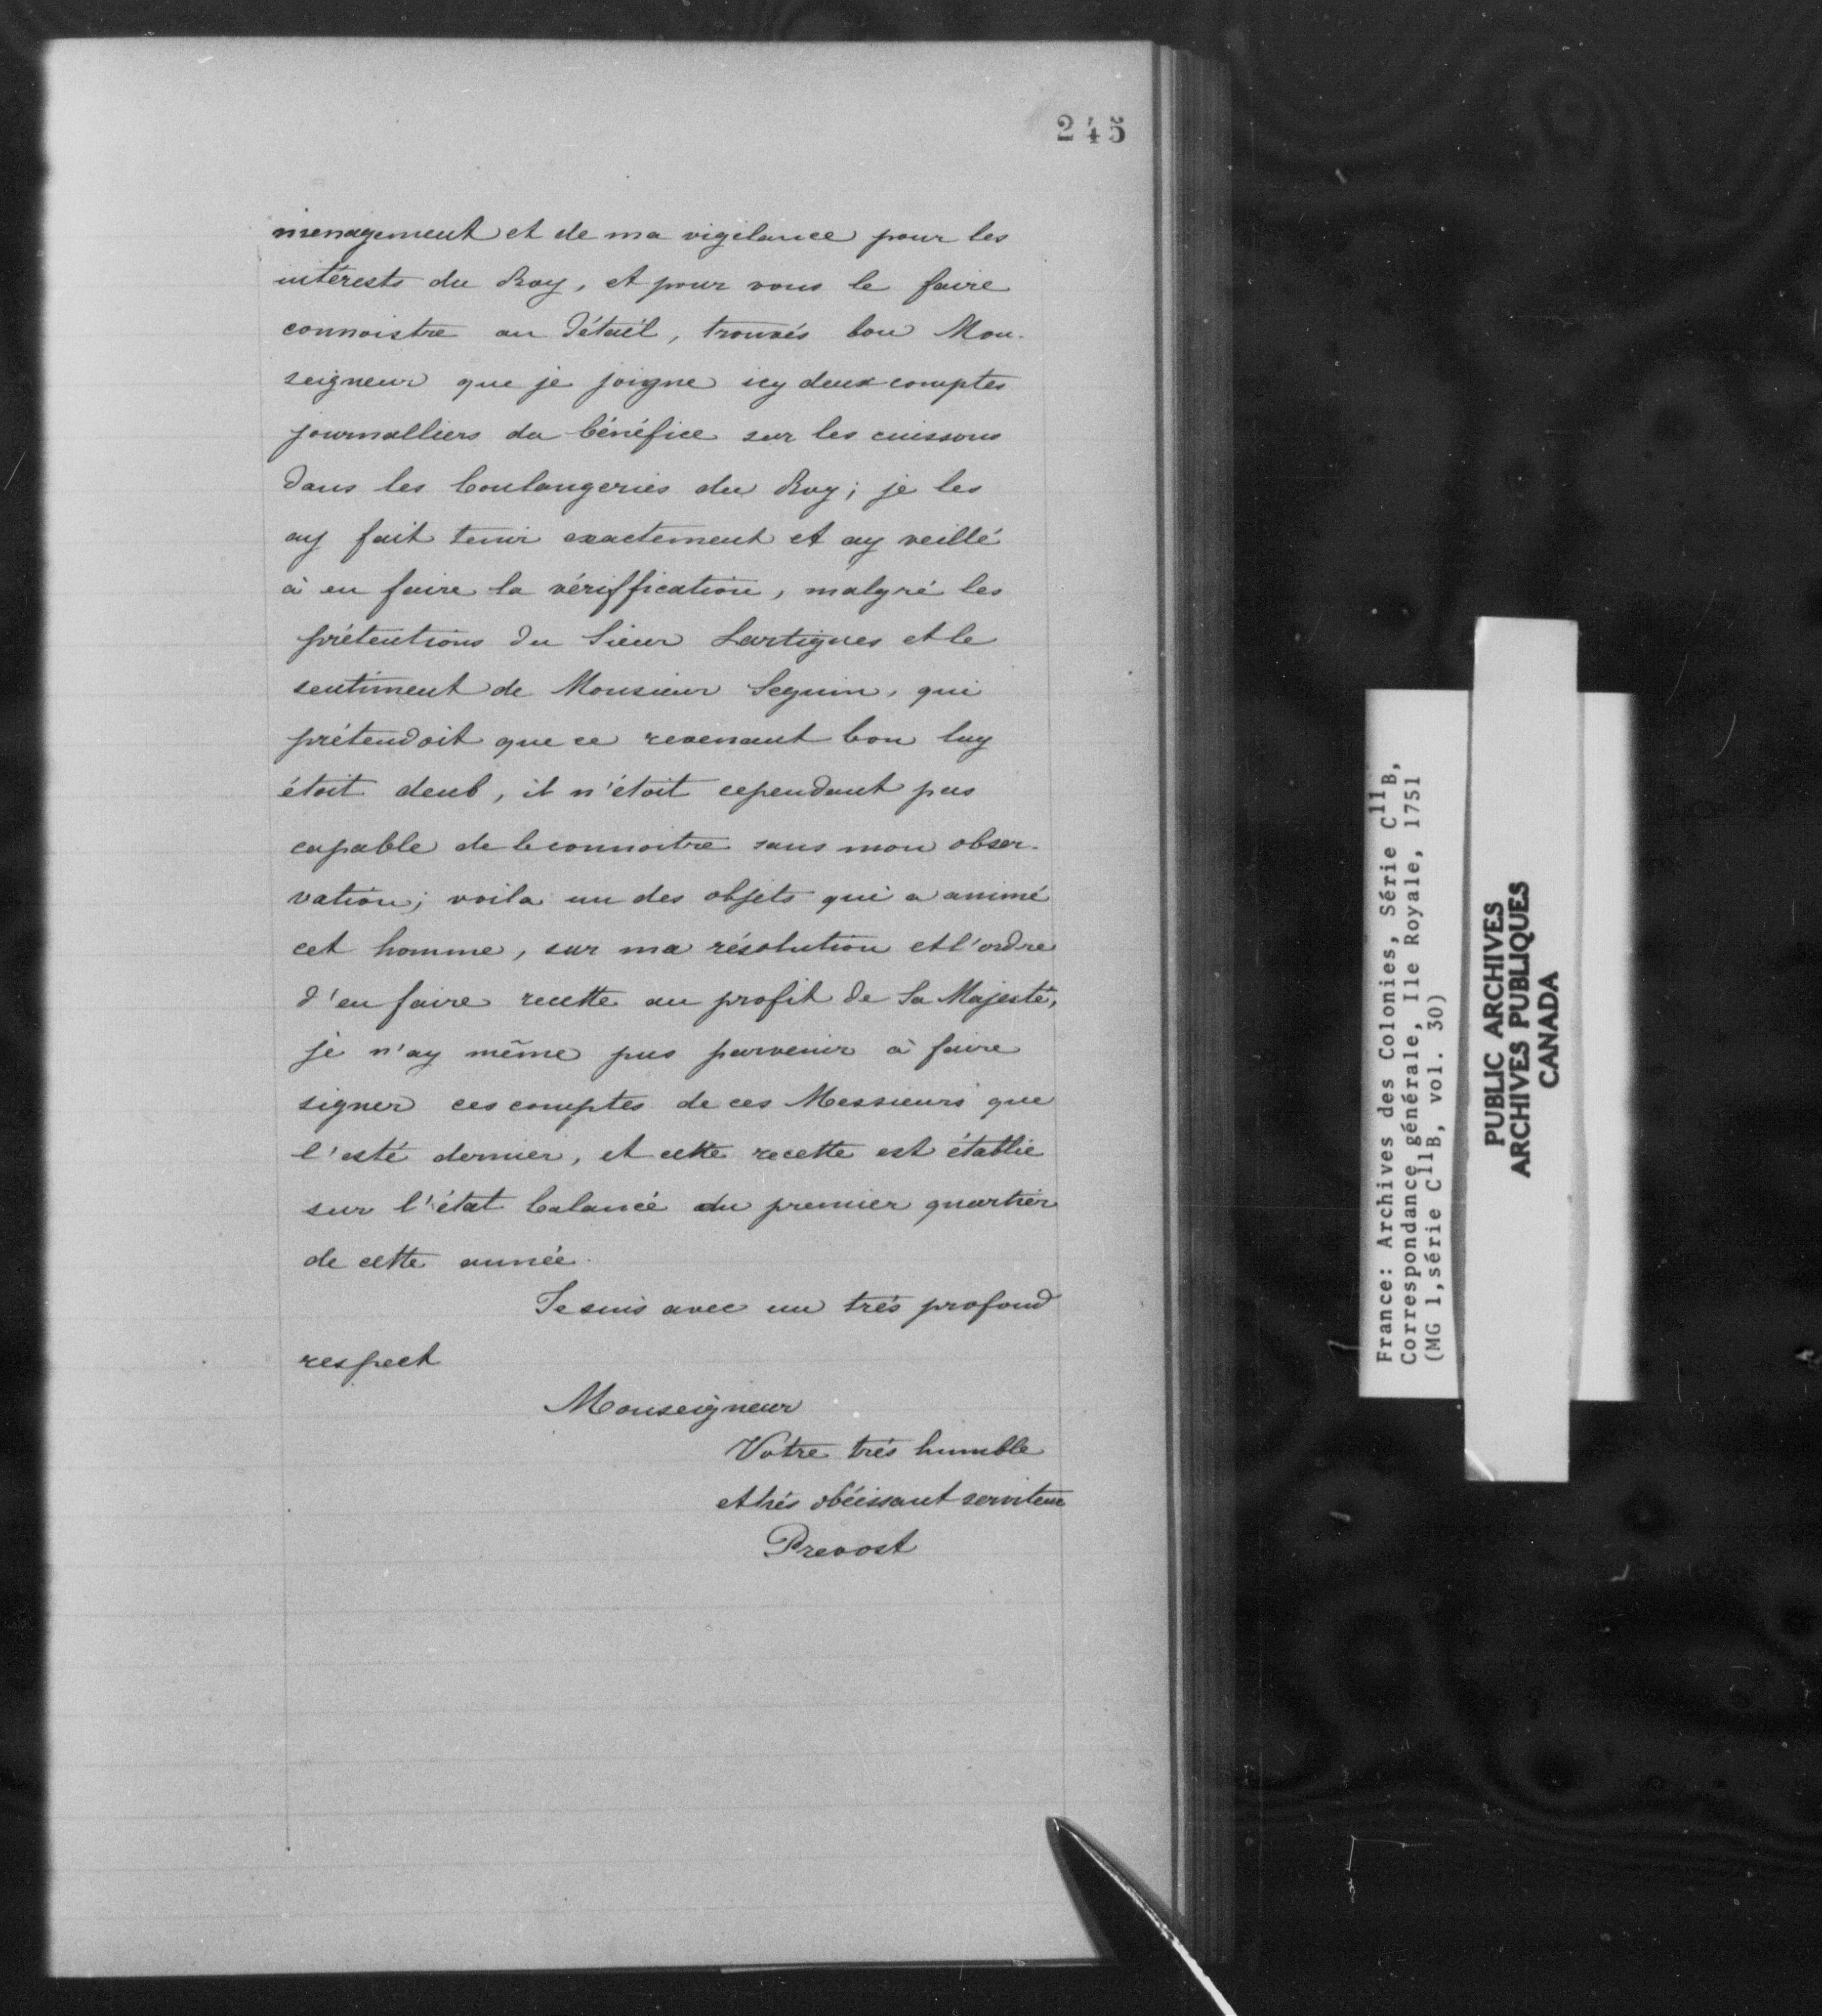 245
menagement et de ma vigilance pour les
intérests du Roy, et pour vous le faire
connoistre au détail, trouvés bon Mon-
seigneur que je joigne icy deux comptes
journalliers du bénéfice sur les cuissons
dans les boulangeries du Roy; je les
ay fait tenir exactement et ay veillé
à en faire la vériffication, malgré les
prétentions du Sieur Lartigues et le
sentiment de Monsieur Seguin, qui
prétendoit que ce revenant bon luy
étoit deub, il n'étoit cependant pas
capable de le connoitre sans mon obser-
vation; voila un des objets qui a animé
cet homme, sur ma résolution et l'ordre
d'en faire recette au profit de Sa Majesté,
je n'ay même pus parvenir à faire
signer ces comptes de ces Messieurs que
l'esté dernier, et cette recette est établie
sur l'état balancé du premier quartier
de cette année.
Je suis avec un trés profond
respect
Monseigneur
Votre trés humble
et trés obéissant serviteur
Prevost
France: Archives des Colonies, Série C11B,
Correspondance générale, Ile Royale, 1751
(MG 1, série C11B, vol. 30)
PUBLIC ARCHIVES
ARCHIVES PUBLIQUES
CANADA